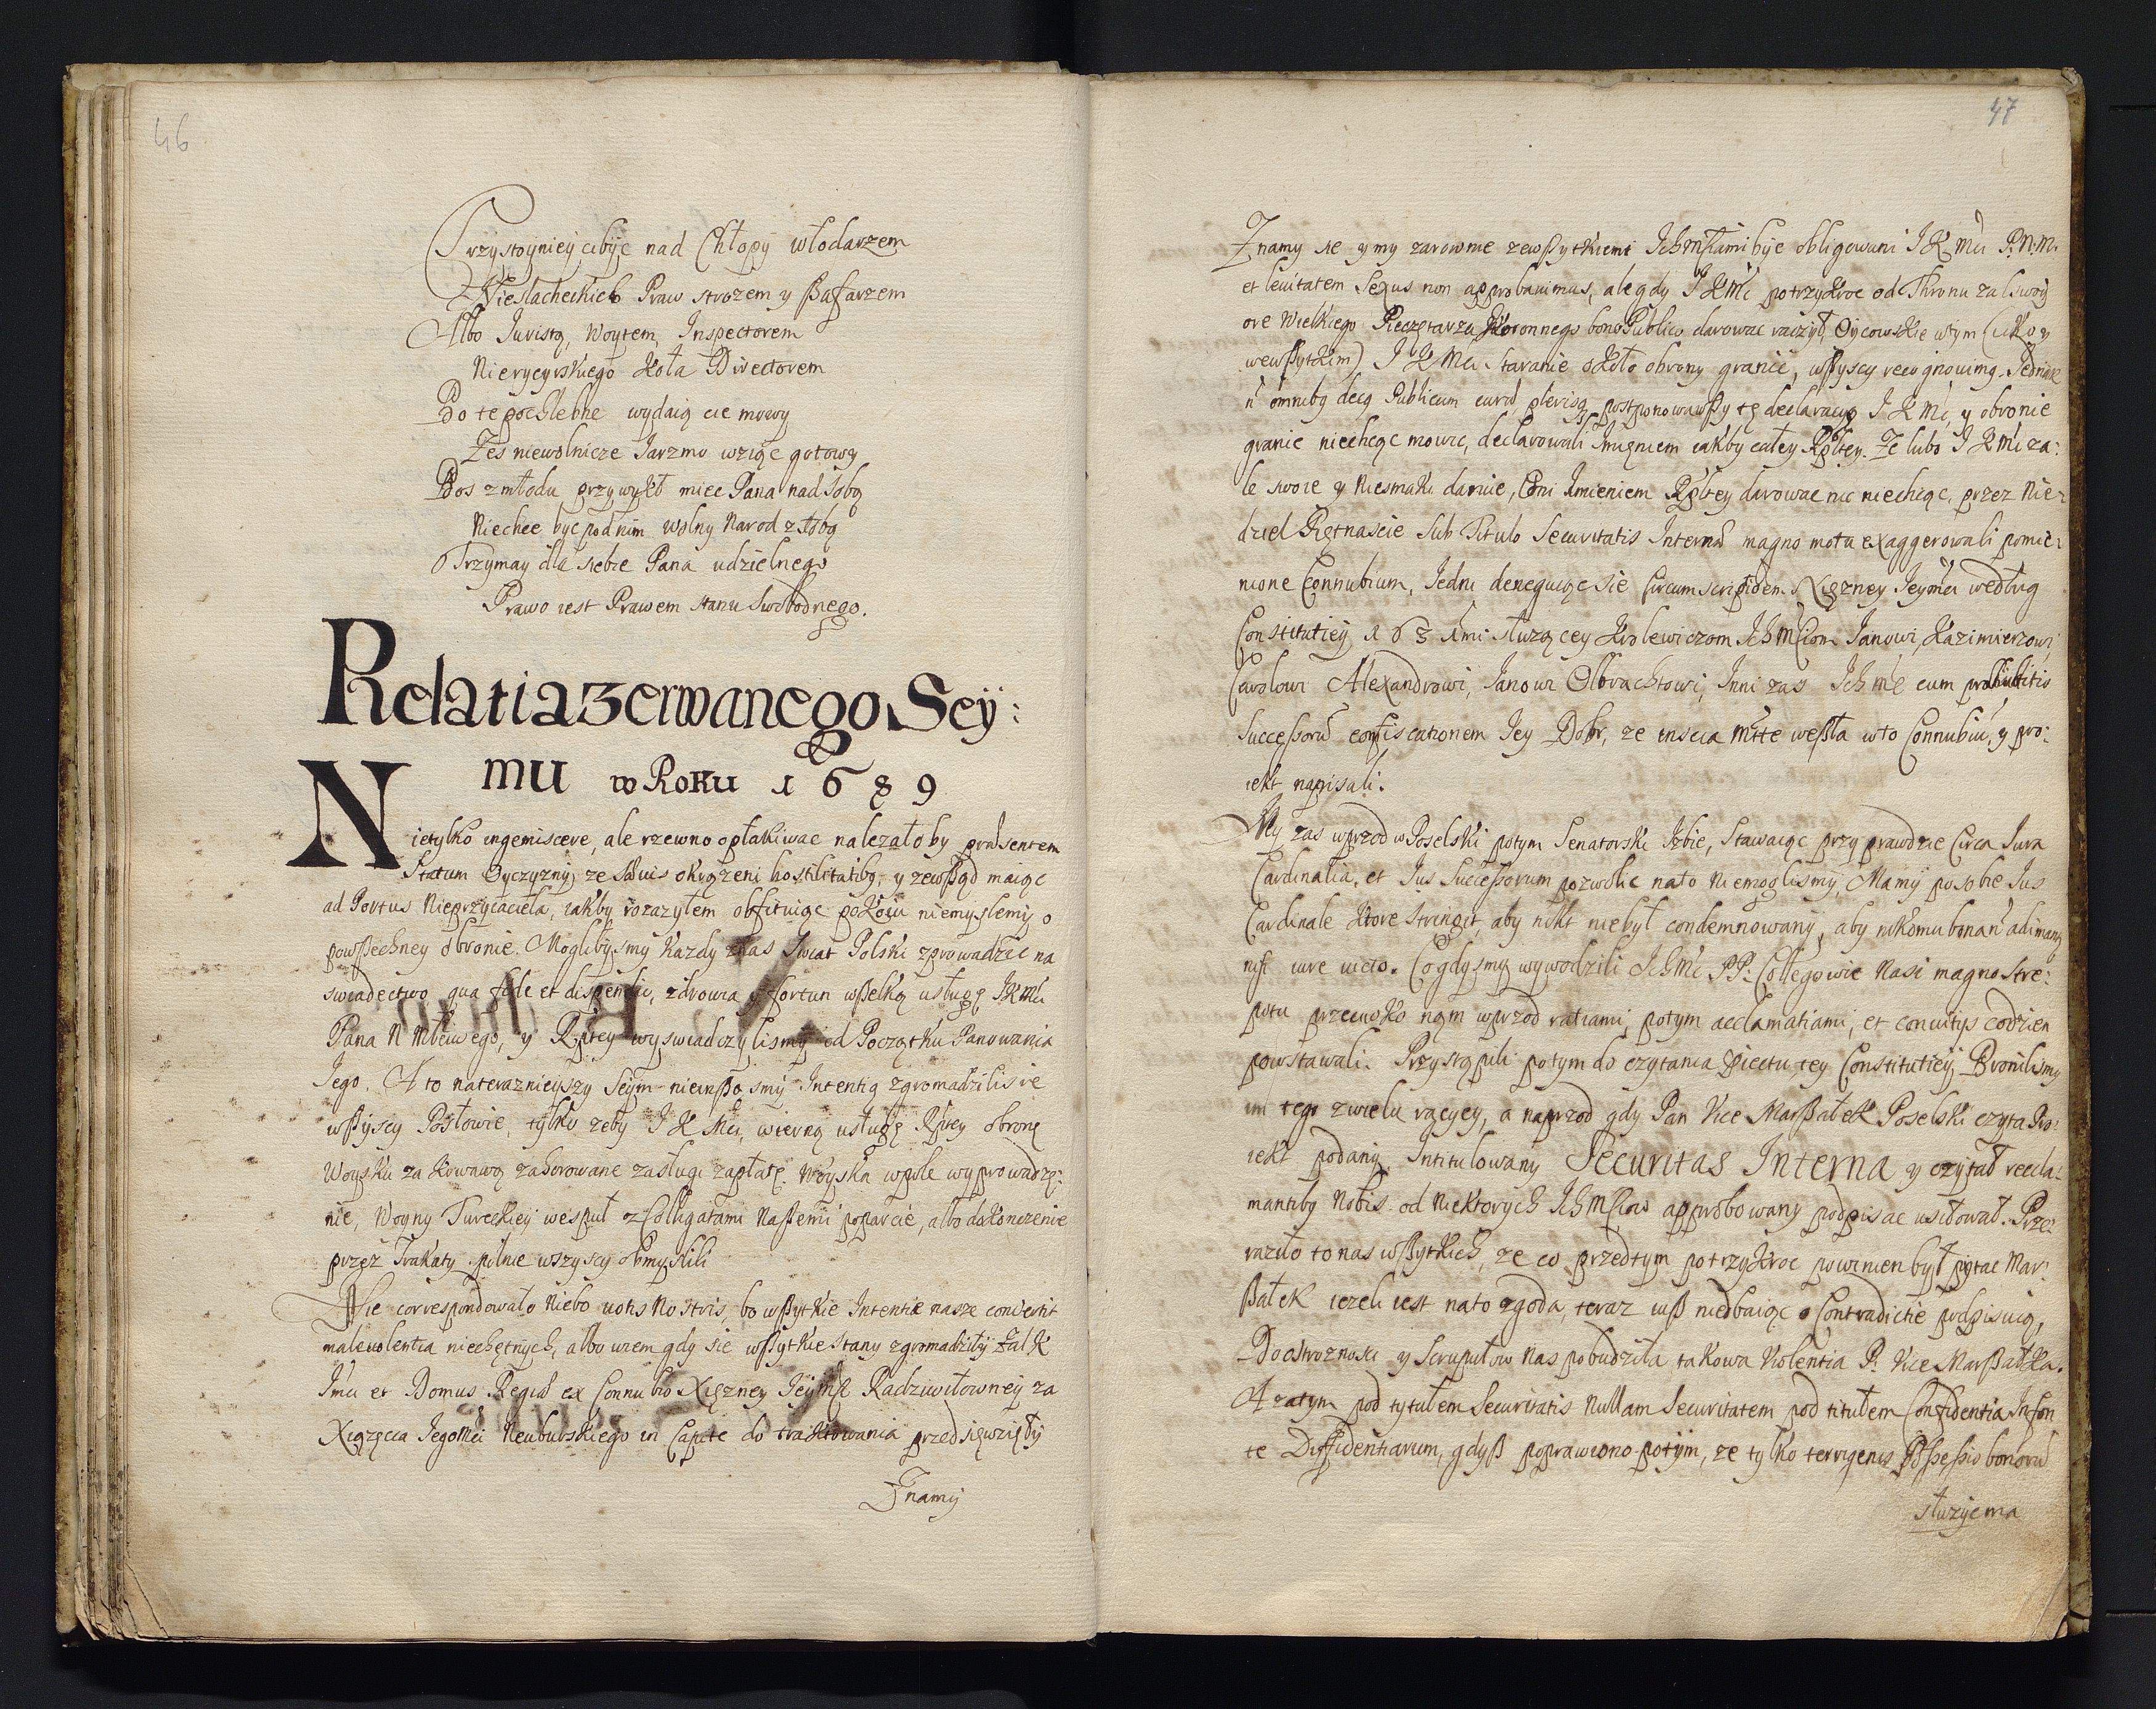 46
Przystoyniey cibÿc nad Chłopÿ włodarzem
Nieslacheckich Praw strozem y ßafarzem
Albo Juristą, Woytem, Inspectorem
Nierycyrskiego Koła Directorem
Bo te pochlebne wydaią cie mowy
Żes niewolnicze Jarzmo wziąc gotowy
Bos zmłodu przywykł miec Pana nad Sobą
Niechce byc podnim wolny Narod z Tobą
Trzymay dla siebie Pana udzielnego
Prawo iest Prawem stanu Swobodnego.
Relatia zerwanego Seÿ:
mu w Roku 1689
Nietylko ingemiscere, ale rzewno opłakiwac nalezałoby præsentem
Statum Oyczyzny, ze sævis okrązeni hostilitatibq, y zewßąd maiąc
ad Portus Nieprzyiaciela, iakby rozazyłem obfituiąc pokoiu niemyslemy o
powßechney obronie. Moglibysmÿ kazdy znas Swiat Polski zprowadzic na
swiadectwo qua fide et dispendio, zdrowia y fortun wßelką usługę JKMci
Pana N Młciwego, y Rptey wyswiadczylismÿ od Początku Panowania
Jego. A to nateraznieyszy Seym nieinßą smÿ Intentią zgromadzili sie
wßyscy Posłowie, tylko zeby J K Mci, wierną usługę Rptey obronę
Woysku za krwawą zahorowane zasługi zapłatę. Woyska wpole wyprowadzę:
nie, Woyny Tureckieÿ wespuł z Colligatami Naßemi poparcie, albo dokonczenie
przez Traktaty pilnie wszyscy obmyslili
Nie correspondowało Niebo votis Nostris, bo wßytkie Intentie nasze convertit
malevolentia niechętnych, albowiem gdy sie wßytkie stany zgromadziłÿ zal K
Jmci et Domus Regiæ ex Connubio Xięzney Jeÿmsc Radziwiłowneÿ za
Xiązęcia JegoMci Neuburskiego in Capite do traktowania przedsięwzięłÿ
Znamÿ
47
Znamy sie y my zarowme zewßytkiemi Ichmsciami bÿc obligowani J K Mci P. N. M.
et levitatem Sexus non approbavimus, ale gdy J K Mc potrzykroc od Thronu za swoÿ
ore Wielkiego Pieczętarza Koronnego bono Publico darowac raczył, Oycowskie wtym (iako y
wewßytkim) J K Mci staranie około obrony granic, wßyscy recognovimq. Jednak
granic niechcąc mowic, declarowali Imieniem iakby całey Rptey. Ze lubo J K Mc za:
le swoie y Niesmaki daruie, Oni Imieniem Rptey darowac nic niechcąc, przez Nie:
dziel Piętnascie Sub Titulo Securitatis Internæ magno motu exaggerowali pomie:
nione Connubium, Jedni denegucąc sie Xięzney Jeymci według
Constitutieÿ słuzącey Krolewiczom Ichmsciom Janowi, Kazimierzowi,
Carolowi Alexandrowi, Janowi Olbrachtowi, Inni zas Ichmc cum
Successorũ confiscationem Jey Dobr, ze inscia weßła wto Connubiũ, y pro:
iekt napisali.
My zas wprzod w Poselski potym Senatorski Izbie, Stawaiąc przy prawdzie Circa Jura
Cardinalia, et Jus Successorum pozwolic nato Niemoglismÿ, Mamÿ posobie Jus
Cardinale ktore stringit, aby nikt niebył condemnowany, aby nikomu bona adimanq
nisi iure victo. Cogdysmy wywodzili Ichmc PP. Collegowie Nasi magno Stre:
pitu przeciwko nąm wprzod ratiami, potym acclamatiami, et convitÿs codzien
powstawali. Przystąpili potym do czytania tey Constitutieÿ. Bronilismy
im tego zwielu racyey, a naprzod gdy Pan Vice Marßałek Poselski czyta Pro:
iekt podanÿ Intitulowany Securitas Interna y czÿtał recla:
mantibq Nobis od Niektorych Ichmsciow approbowany podpisac usiłował. Prze:
raziło to nas wßytkich, ze co przedtym potrzykroc powinien był pytac Mar:
ßałek iezeli iest nato zgoda, teraz iuß niedbaiąc o Contradictie podpisuią,
Doostroznosci y Scrupułow Nas pobudziła takowa Violentia P. Vice Marßałka.
A zatym pod tytułem Securitatis Nullam Securitatem pod titułem Confidentia Infon
te Diffidentiarum, gdyß poprawiono potÿm, ze tylko terrigenis Possessio bonorũ
słuzÿc ma